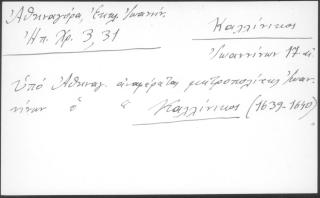 Ἀθηναγόρα, Ἐκκλ. Ἰωανν.
Ἠπ. Χρ. 3, 31
Καλλίνικος
Ἰωαννίνων 17 αἰ.
Ὑπό Ἀθηναγ. ἀναφέρεται μητροπολίτης Ἰωαν-
νίνων ὁ " Καλλίνικος (1639-1640)